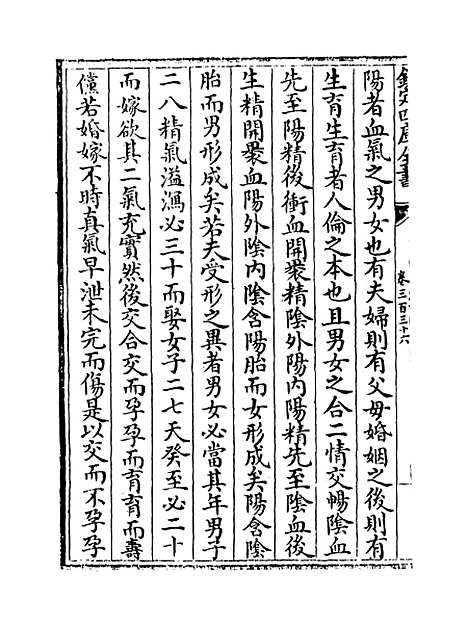 欽定四庫全書
卷三百三十六
陽者血氣之男女也有夫婦則有父母婚姻之後則有
生育生育者人倫之本也且男女之合二情交暢陰血
先至陽精後衝血開裹精陰外陽內陽精先至陰血後
生精開裹血陽外陰內陰含陽胎而女形成矣陽含陰
胎而男形成矣若夫受形之異者男女必當其年男子
二八精氣溢瀉必三十而娶女子二七天癸至必二十
而嫁欲其二氣充實然後交合交而孕孕而育育而壽
儻若婚嫁不時真氣早泄未完而傷是以交而不孕孕